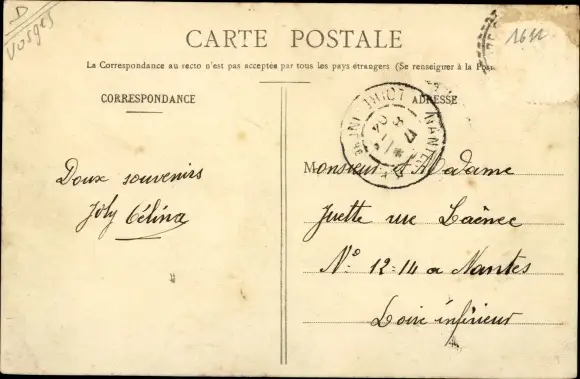 D
Vosges
1611
CARTE POSTALE
La Correspondance au recto n'est pas acceptée par tous les pays étrangers (Se renseigner à la Pos
CORRESPONDANCE
ADRESSE
NANTES
Doux souvenirs
Joly Célina
Monsieur et Madame
Juette rue Laënec
N° 12-14 a Nantes
Loire inférieur